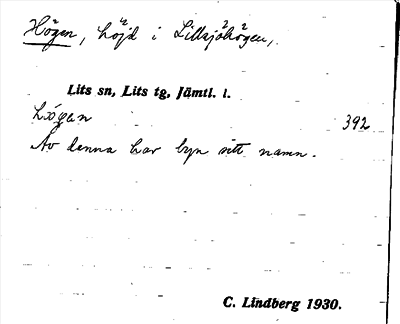 Högen, höjd i Lillsjöhögen,
Lits sn, Lits tg, Jämtl. l.
392
Av denna har byn sitt namn.
C. Lindberg 1930.